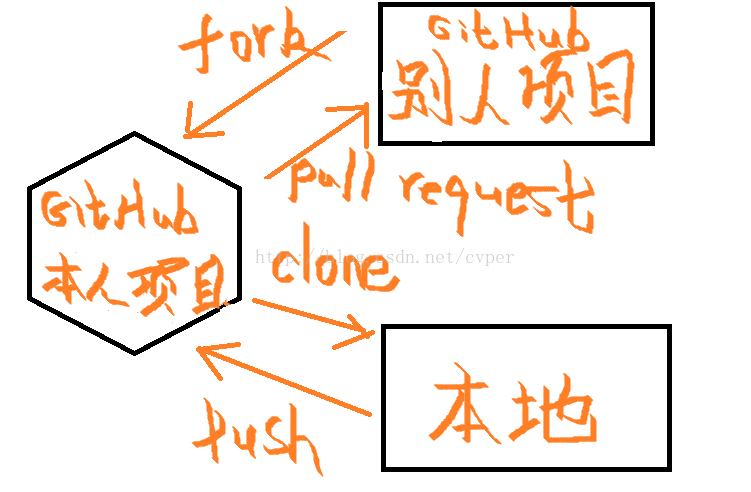 fork
GitHub
别人项目
pull request
GitHub
本人项目
http://blog.csdn.net/cvper
clone
本地
push